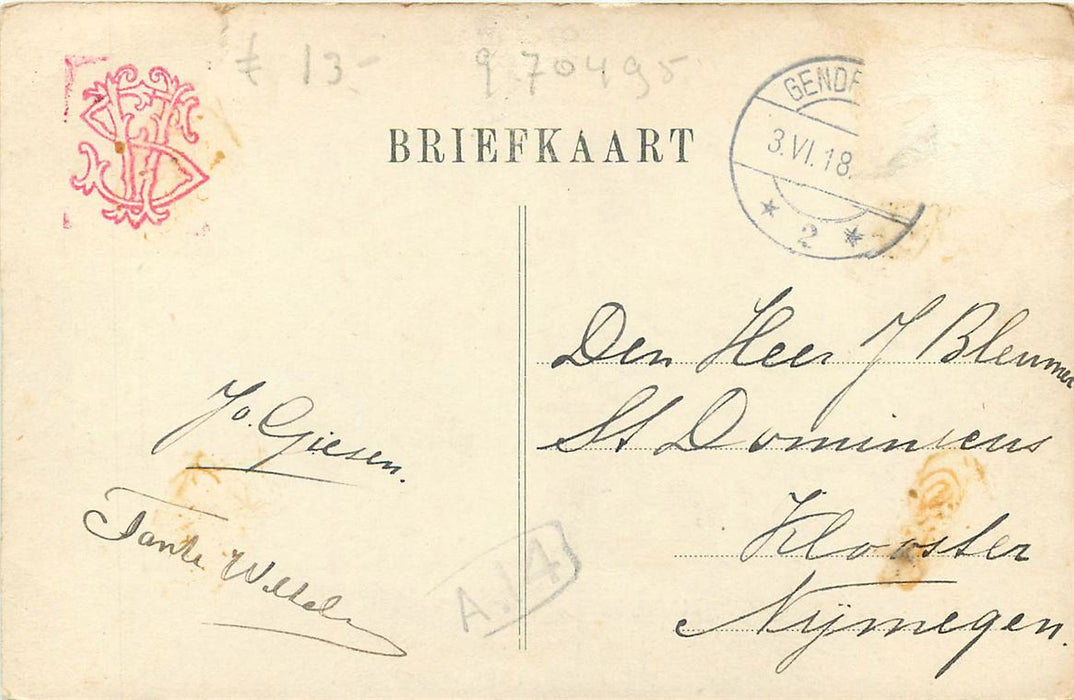 € 13.- 970495
BRIEFKAART
GEND
3.VI.18.
2
Den Heer J Bleumer
St Dominicus
Klooster
Nijmegen.
Jo. Giesen.
Tante
A.14